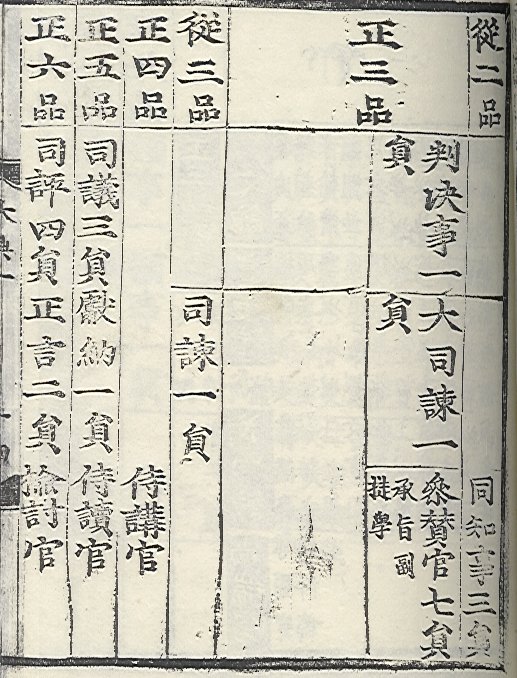 從二品
同知事三貟
正三品
判决事一
貟
大司諫一
貟
叅賛官七貟
承旨副
提學
從三品
司諫一貟
正四品
侍講官
正五品
司議三貟獻納一貟侍讀官
正六品
司評四貟正言二貟檢討官